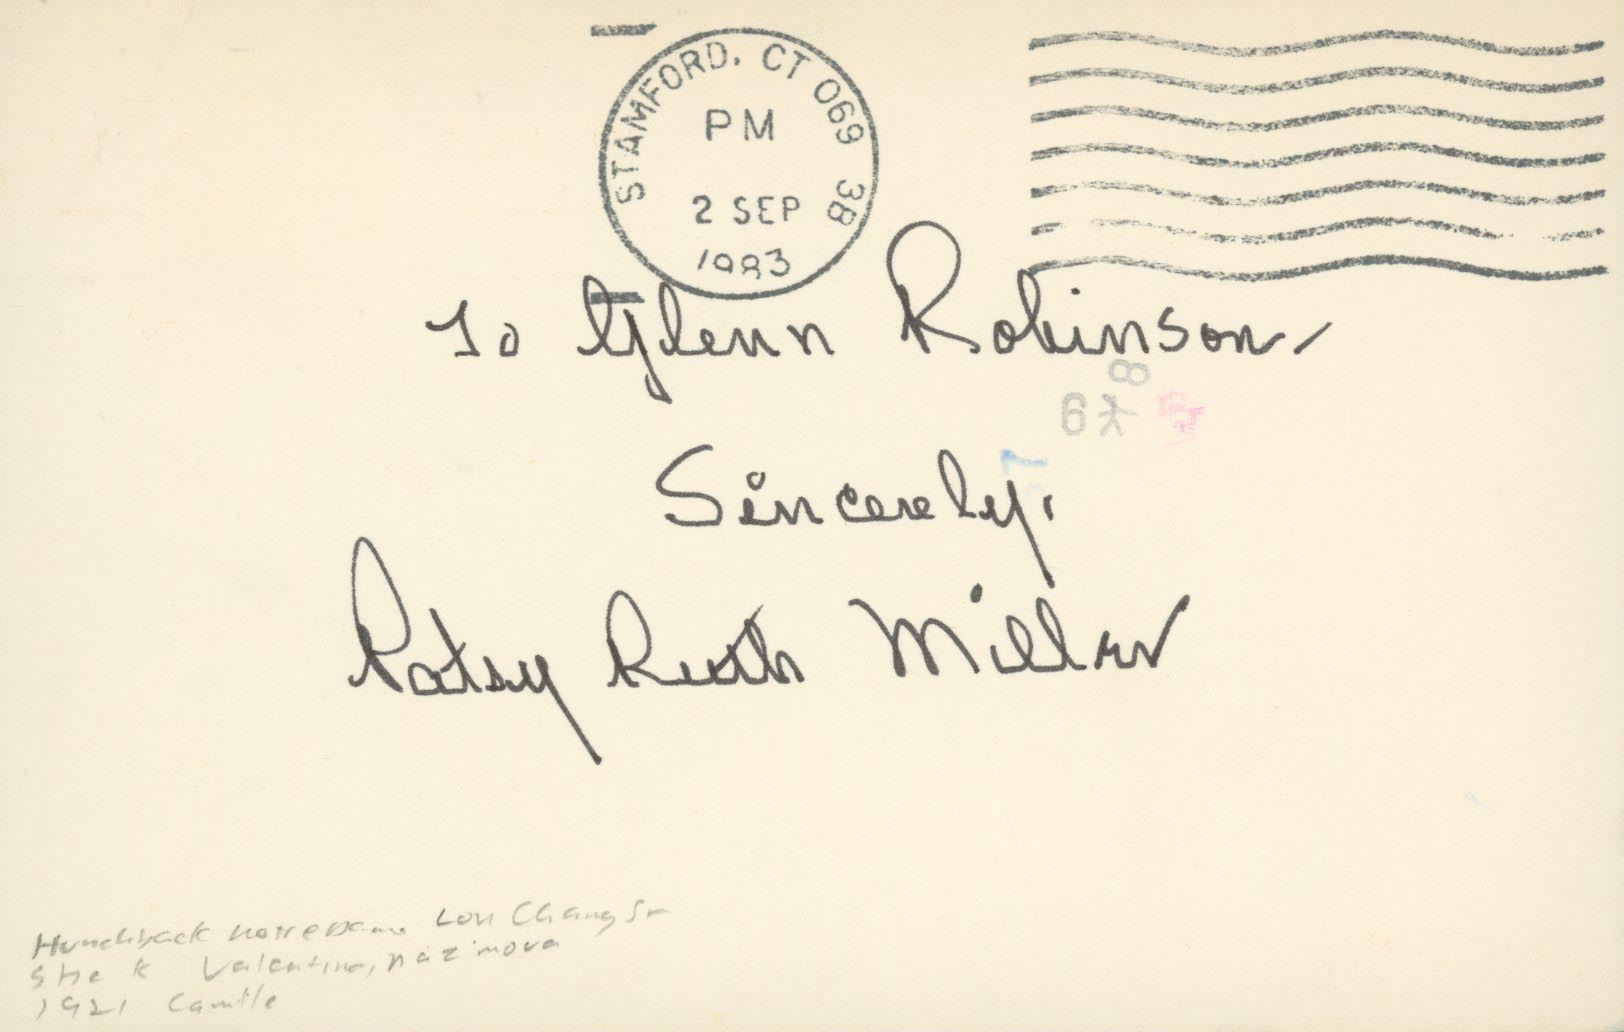 STAMFORD, CT 069 3B
PM
2 SEP
1983
To Glenn Robinson,
Sincerely,
Patsy Ruth Miller
Hunchback Notre Dame Lon Chaney Sr
Shek Valentino, Nazimova
1921 Camille